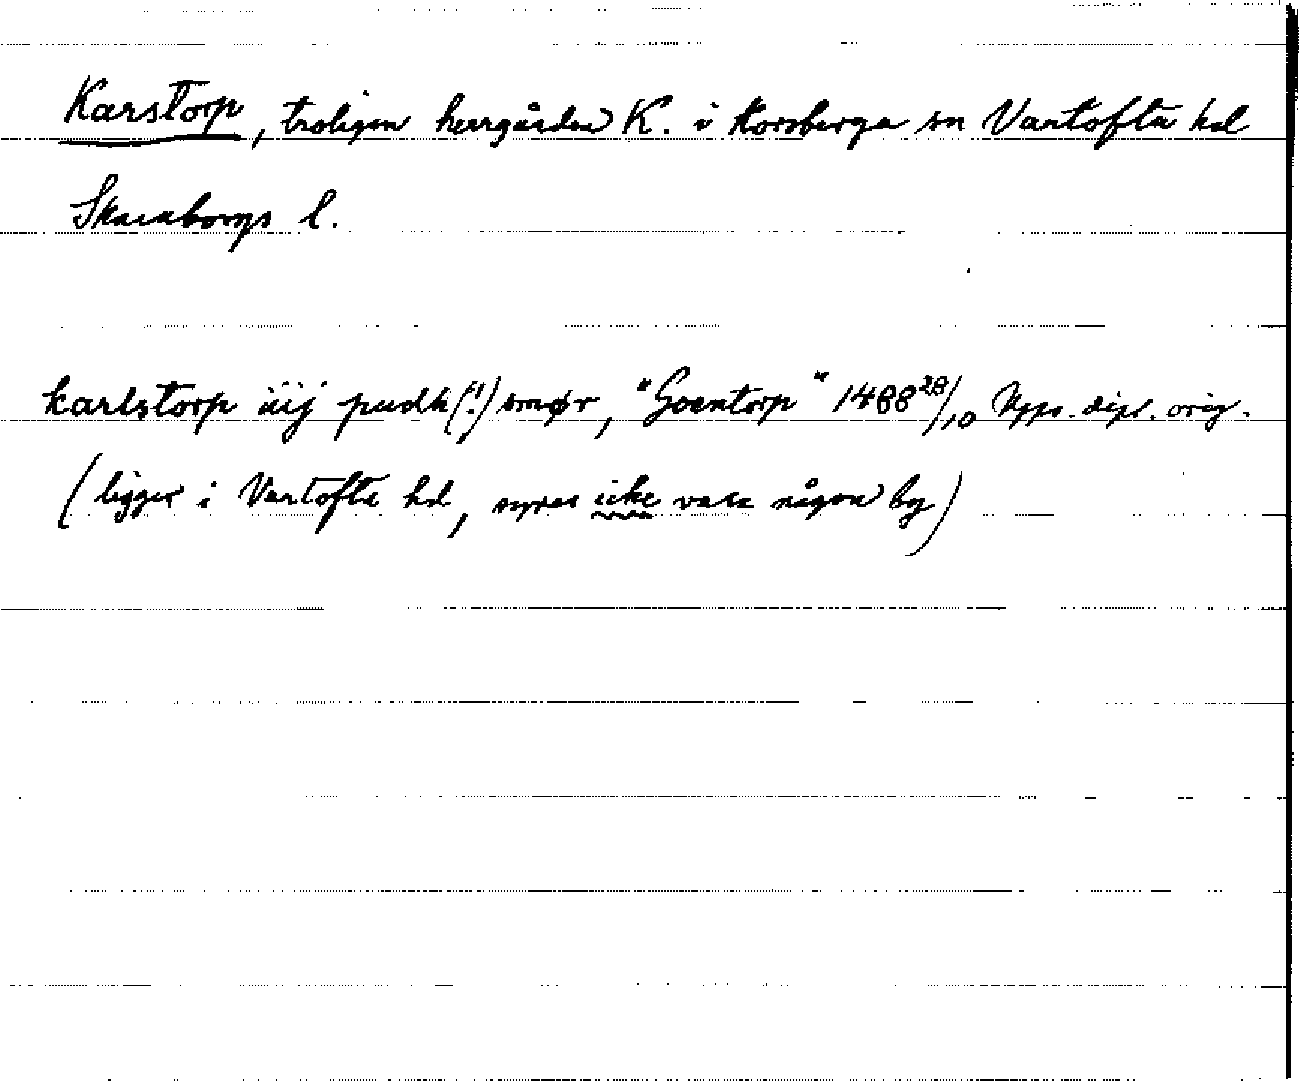 Karstorp, troligen herrgården K. i Korsberga sn Vartofta hd
Skaraborgs l.
karlstorp iiij pudh (!) smør, "Goentorp" 1488 28/10 Upps. dipl. orig.
(ligger i Vartofta hd, synes icke vara någon by)